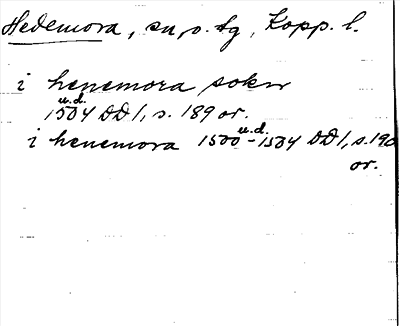 Hedemora, sn, o. tg, Kopp. l.
i henemora sokn
u.d.
1504 DD 1, s. 189 or.
u.d.
i henemora 1500-1504 DD 1, s. 190
or.